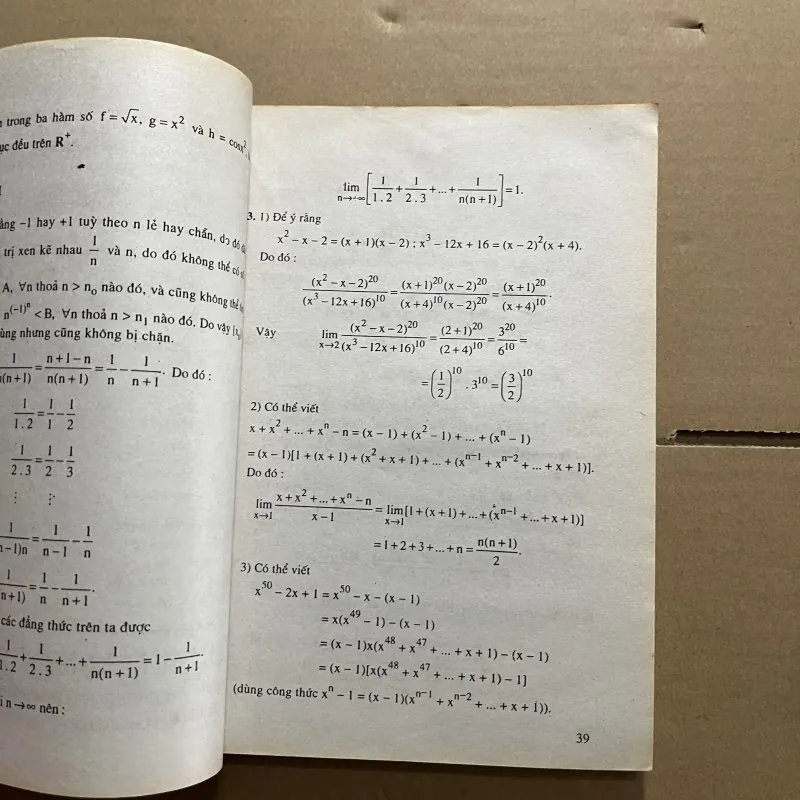 trong ba hàm số f = √x, g = x² và h = cosx²
đều trên R⁺.
−1 hay +1 tuỳ theo n lẻ hay chẵn, do đó
trị xen kẽ nhau 1/n và n, do đó không thể có
A, ∀n thoả n > n₀ nào đó, và cũng không thể
n^((−1)^n) < B, ∀n thoả n > n₁ nào đó. Do vậy
nhưng cũng không bị chặn.
1/(n(n+1)) = (n+1−n)/(n(n+1)) = 1/n − 1/(n+1). Do đó :
1/(1.2) = 1/1 − 1/2
1/(2.3) = 1/2 − 1/3
⋮ ⋮
1/((n−1)n) = 1/(n−1) − 1/n
1/(n(n+1)) = 1/n − 1/(n+1).
các đẳng thức trên ta được
1/(1.2) + 1/(2.3) + ... + 1/(n(n+1)) = 1 − 1/(n+1).
n→∞ nên :
lim n→∞ [1/(1.2) + 1/(2.3) + ... + 1/(n(n+1))] = 1.
3. 1) Để ý rằng
x² − x − 2 = (x + 1)(x − 2) ; x³ − 12x + 16 = (x − 2)²(x + 4).
Do đó :
(x² − x − 2)²⁰/(x³ − 12x + 16)¹⁰ = (x+1)²⁰(x−2)²⁰/(x+4)¹⁰(x−2)²⁰ = (x+1)²⁰/(x+4)¹⁰.
Vậy lim x→2 (x² − x − 2)²⁰/(x³ − 12x + 16)¹⁰ = (2+1)²⁰/(2+4)¹⁰ = 3²⁰/6¹⁰ =
= (1/2)¹⁰ . 3¹⁰ = (3/2)¹⁰
2) Có thể viết
x + x² + ... + xⁿ − n = (x − 1) + (x² − 1) + ... + (xⁿ − 1)
= (x − 1)[1 + (x + 1) + (x² + x + 1) + ... + (xⁿ⁻¹ + xⁿ⁻² + ... + x + 1)].
Do đó :
lim x→1 (x + x² + ... + xⁿ − n)/(x − 1) = lim x→1 [1 + (x + 1) + ... + (xⁿ⁻¹ + ... + x + 1)]
= 1 + 2 + 3 + ... + n = n(n+1)/2.
3) Có thể viết
x⁵⁰ − 2x + 1 = x⁵⁰ − x − (x − 1)
= x(x⁴⁹ − 1) − (x − 1)
= (x − 1)x(x⁴⁸ + x⁴⁷ + ... + x + 1) − (x − 1)
= (x − 1)[x(x⁴⁸ + x⁴⁷ + ... + x + 1) − 1]
(dùng công thức xⁿ − 1 = (x − 1)(xⁿ⁻¹ + xⁿ⁻² + ... + x + 1)).
39